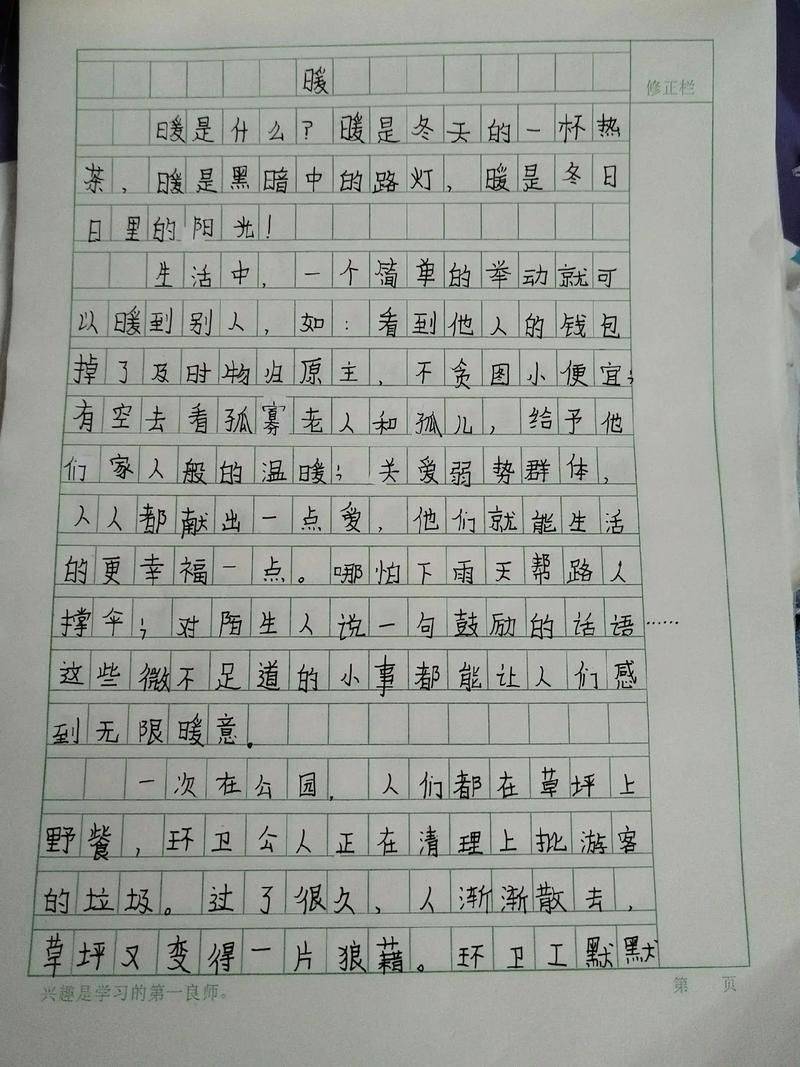 暖
修正栏
暖是什么？暖是冬天的一杯热
茶，暖是黑暗中的路灯，暖是冬日
日里的阳光！
生活中，一个简单的举动就可
以暖到别人，如：看到他人的钱包
掉了及时物归原主，不贪图小便宜；
有空去看孤寡老人和孤儿，给予他
们家人般的温暖；关爱弱势群体，
人人都献出一点爱，他们就能生活
的更幸福一点。哪怕下雨天帮路人
撑伞；对陌生人说一句鼓励的话语……
这些微不足道的小事都能让人们感
到无限暖意。
一次在公园，人们都在草坪上
野餐，环卫公人正在清理上批游客
的垃圾。过了很久，人渐渐散去，
草坪又变得一片狼藉。环卫工默默
兴趣是学习的第一良师。
第 页